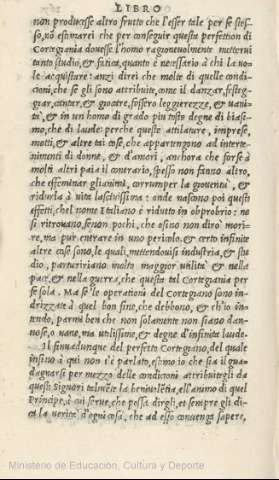 LIBRO
non producesse altro frutto che l'esser tale per se stes-
so, nō estimarei che per conseguir questa perfettion di
Cortegiania douesse l'homo ragioneuolmente metterui
tanto studio, & fatica, quanto è necessario à chi la uo-
le acquistare: anzi direi che molte di quelle condicio-
ni, che se gli sono attribuite, come il danzar, festeg-
giar, cantar, & giocare, fossero leggierezze, & uani-
tà, & in un homo di grado piu tosto degne di biasi-
mo, che di laude: perche queste attilature, imprese,
motti, & altre tai cose, che appartengono ad interte-
nimenti di donne, & d'amori, anchora che forse à
molti altri paia il contrario, spesso non fanno altro,
che effeminar gli animi, corrumper la giouentù, &
ridurla à uita lasciuissima: onde nascono poi questi
effetti, che'l nome Italiano è ridutto in obprobrio: ne
si ritrouano, se non pochi, che osino non dirò mori-
re, ma pur entrare in uno periculo. & certo infinite
altre cose sono, le quali, mettendouisi industria, & stu
dio, partuririano molto maggior utilità & nella
pace, & nella guerra, che questa tal Cortegiania per
se sola. Ma se le operationi del Cortegiano sono in-
drizzate à quel bon fine, che debbono, & ch'io in-
tendo, parmi ben che non solamente non siano dan-
nose, o uane, ma utilissime, & degne d'infinite laude.
Il fin adunque del perfetto Cortegiano, del quale
insino à qui non s'è parlato, estimo io che sia il gua-
dagnarsi per mezzo delle conditioni attribuitegli da
questi Signori talmēte la beniuolētia, e l'animo di quel
Principe, à cui serue, che possa dirgli, et sempre gli di-
ca la uerità d'ogni cosa, che ad esso conuenga sapere,
Ministerio de Educación, Cultura y Deporte